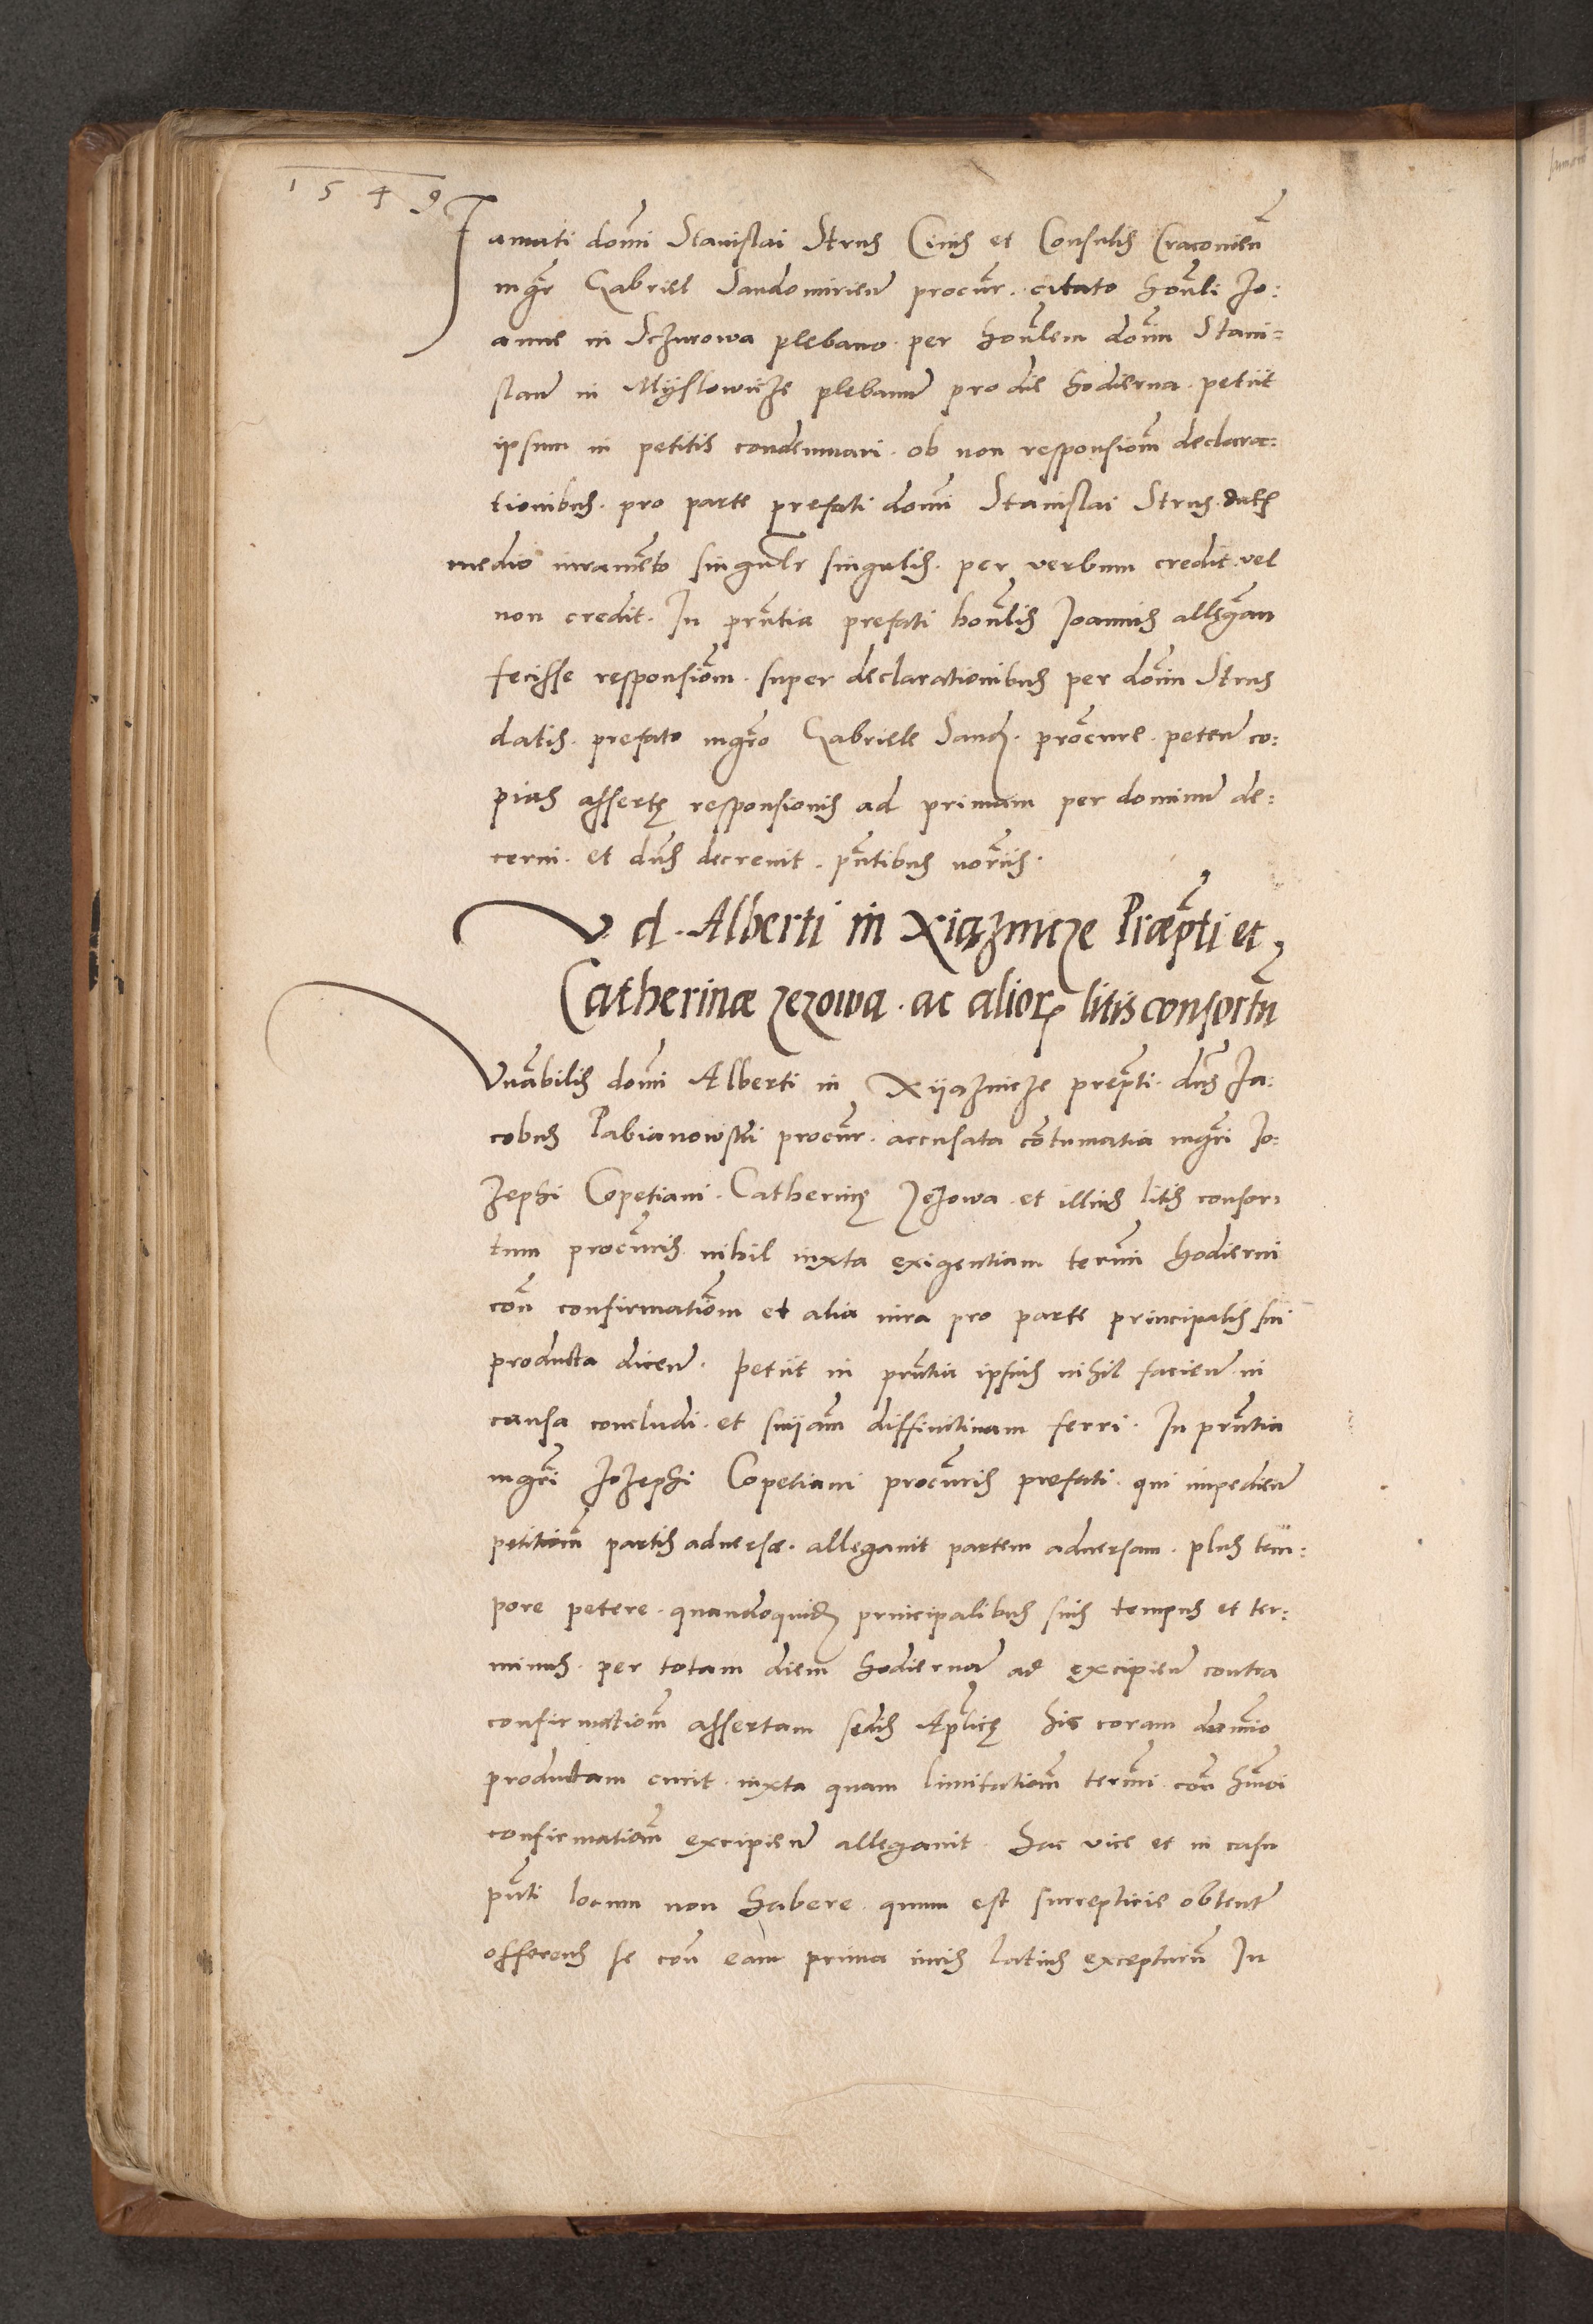 1549
Famati domi Stanislai Strus Civis et Consulis Cracovien
mgr Gabriel Sandomirien procur. citato honli Jo:
anne in Sczurowa plebano per honlem domi Stani=
slau in Myslowicze plebanum pro die hodierna petiit
ipsum in petitis condemnari ob non responsiom declara:
tionibus. pro parte prefati domi Stanislai Strus datis
medio iuramento singulr singulis. per verbum credit vel
non credit. In prntia prefati honlis Joannis allegan
fecisse responsiom. super declarationibus per domi Strus
datis. prefato mgro Gabriele Sand. procure peten co:
pias assertę responsionis ad primam per dominum de:
cerni. et dns decrevit. pntibus noriis.
V. d. Alberti in Xiąznicze Præpti et
Catherinæ Zezowa. ac alior litisconsortu
Vnabilis domi Alberti in Xiiaznicze prepti. dns Ja:
cobus Pabianowski procur. accusata contumatia mgri Jo:
zephi Copetiani. Catherinę Zezowa et illius litis consor:
tum procuris nihil iuxta exigentiam termi hodierni
con confirmatiom et alia iura pro parte principalis sui
producta dicen. petiit in prntia ipsius nihil facien in
causa concludi. et sniiam diffinitivam ferri. In prntia
mgri Jozephi Copetiani procuris prefati qui impedien
petitiom partis adversæ. allegavit partem adversam. plus tem:
pore petere. quandoquid principalibus suis tempus et ter:
minus. per totam diem hodiernam ad excipien contra
confirmatiom assertam sedis Aplicę hic coram domio
productam currit iuxta quam limitatiom termi con hmoi
confirmatiom excipien allegavit. hac vice et in casu
pnti locum non habere. quum est surrepticie obtent
offerens se con eam prima iuris latius excepturu In